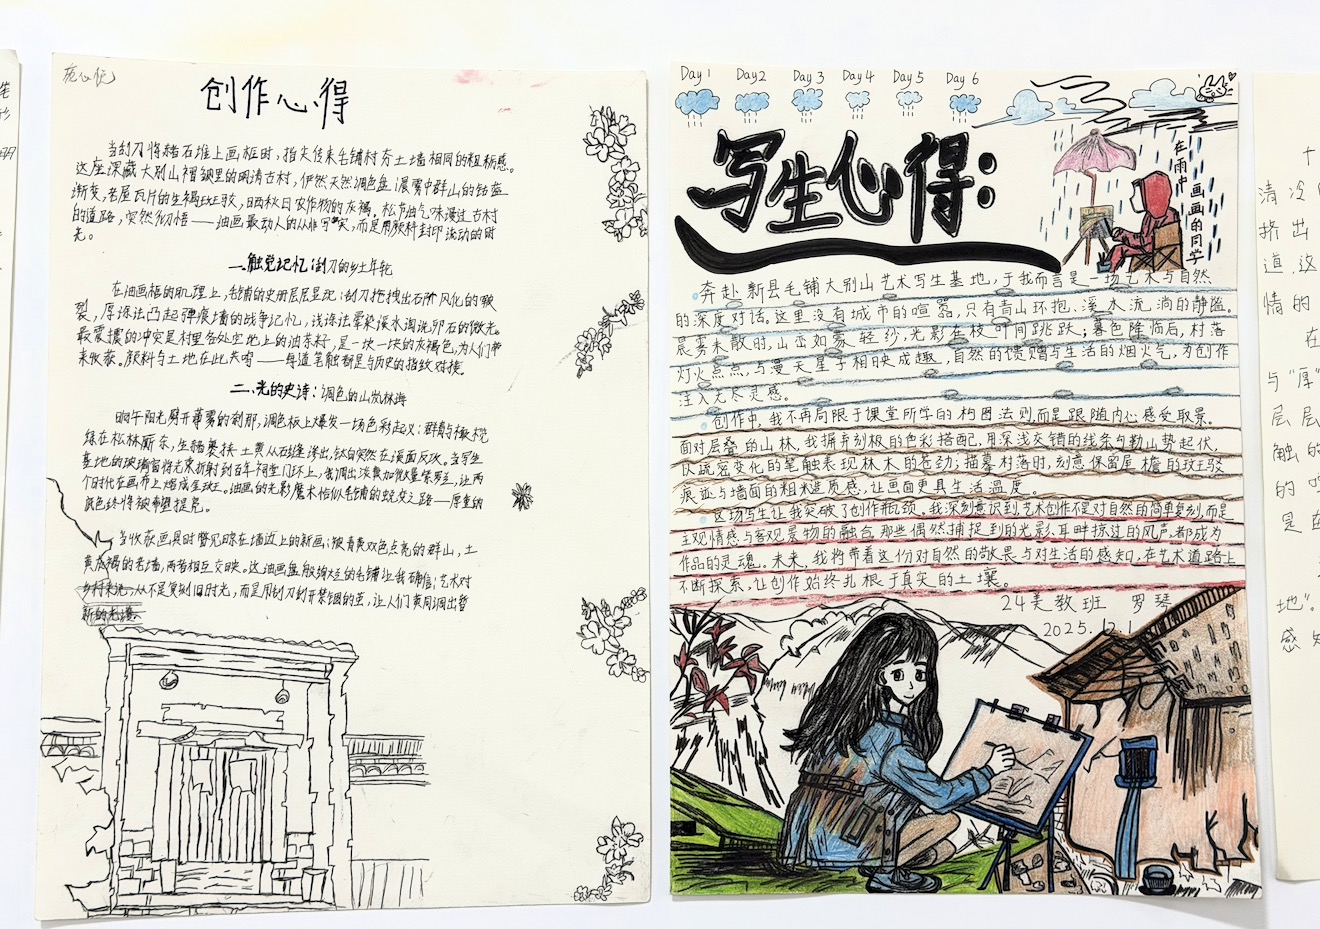 创作心得
当刮刀将赭石堆上画框时，指尖传来毛铺村夯土墙相同的粗粝感。
这座深藏大别山褶皱里的明清古村，俨然天然调色盘
渐变，老屋瓦片的生褐斑驳，晒秋日农作物的灰褐。松节油气味漫过古村
的道路，突然彻悟——油画最动人的从非写实，而是用颜料封印流动的时
光。
一、触觉记忆：刮刀的乡土年轮
在油画框的肌理上，毛铺的史册层层显现：刮刀拖拽出石阶风化的皲
裂，厚涂法凸起弹痕墙的战争记忆，浅涂法晕染溪水淘洗卵石的微光。
最震撼的冲突是村里各处空地上的油茶籽，是一块一块的灰褐色，为人们带
来收获。颜料与土地在此共鸣——每道笔触都是与历史的指纹对接。
二、光的史诗：调色的山岚林海
晌午阳光劈开薄雾的刹那，调色板上爆发一场色彩起义：群青与橄榄
绿在松林厮杀，生褐裹挟土黄从石缝渗出，钛白突然在溪面反攻。当写生
基地的玻璃窗将光束折射到百年祠堂门环上，我调出淡黄加微量紫罗兰，让两
个时代在画布上熔成星斑。油画的光影魔术恰似毛铺的蜕变之路——厚重的
底色终将被希望提亮。
当收获画具时瞥见晾在墙边上的新画：被青黄双色点亮的群山，土
黄灰褐的老墙，两者相互交映。这油画盘般绚烂的毛铺让我确信：艺术对
乡村来说——从不是复刻旧时光，而是用刮刀剖开禁锢的茧，让人们共同调出
新的光谱。
Day 1 Day2 Day 3 Day 4 Day 5 Day 6
写生心得：
在雨中画画的同学
奔赴新县毛铺大别山艺术写生基地，于我而言是一场艺术与自然
的深度对话。这里没有城市的喧嚣，只有青山环抱、溪水流淌的静谧。
晨雾未散时，山峦如蒙轻纱，光影在枝叶间跳跃；暮色降临后，村落
灯火点点，与漫天星子相映成趣，自然的馈赠与生活的烟火气，为创作
注入无尽灵感。
创作中，我不再局限于课堂所学的构图法则而是跟随内心感受取景。
面对层叠的山林，我摒弃刻板的色彩搭配，用深浅交错的线条勾勒山势起伏，
以疏密变化的笔触表现林木的苍劲；描摹村落时，刻意保留屋檐的斑驳
痕迹与墙面的粗糙质感，让画面更具生活温度。
这场写生让我突破了创作瓶颈。我深刻意识到，艺术创作不是对自然的简单复刻，而是
主观情感与客观景物的融合。那些偶然捕捉到的光影、耳畔掠过的风声，都成为
作品的灵魂。未来，我将带着这份对自然的敬畏与对生活的感知，在艺术道路上
不断探索，让创作始终扎根于真实的土壤。
24美教班 罗琴
2025.12.1
十
清冷
挤出
道，这
情的
在
与"厚"
层层
触的
的
是在
地"。
感知